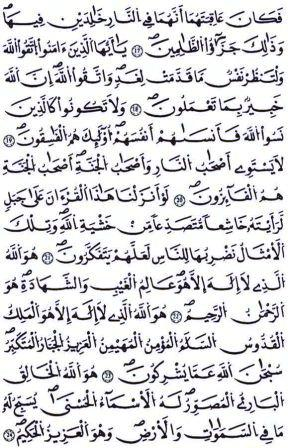 فَكَانَ عَاقِبَتَهُمَا أَنَّهُمَا فِي النَّارِ خَالِدَيْنِ فِيهَا
وَذَٰلِكَ جَزَٰٓؤُا الظَّٰلِمِينَ ١٧ يَٰٓأَيُّهَا الَّذِينَ ءَامَنُوا اتَّقُوا اللَّهَ
وَلْتَنظُرْ نَفْسٌ مَّا قَدَّمَتْ لِغَدٍ وَاتَّقُوا اللَّهَ إِنَّ اللَّهَ
خَبِيرٌ بِمَا تَعْمَلُونَ ١٨ وَلَا تَكُونُوا كَالَّذِينَ
نَسُوا اللَّهَ فَأَنسَٰهُمْ أَنفُسَهُمْ أُولَٰٓئِكَ هُمُ الْفَٰسِقُونَ ١٩
لَا يَسْتَوِي أَصْحَٰبُ النَّارِ وَأَصْحَٰبُ الْجَنَّةِ أَصْحَٰبُ الْجَنَّةِ
هُمُ الْفَآئِزُونَ ٢٠ لَوْ أَنزَلْنَا هَٰذَا الْقُرْءَانَ عَلَىٰ جَبَلٍ
لَّرَأَيْتَهُ خَٰشِعًا مُّتَصَدِّعًا مِّنْ خَشْيَةِ اللَّهِ وَتِلْكَ
الْأَمْثَٰلُ نَضْرِبُهَا لِلنَّاسِ لَعَلَّهُمْ يَتَفَكَّرُونَ ٢١ هُوَ اللَّهُ
الَّذِي لَا إِلَٰهَ إِلَّا هُوَ عَٰلِمُ الْغَيْبِ وَالشَّهَٰدَةِ هُوَ
الرَّحْمَٰنُ الرَّحِيمُ ٢٢ هُوَ اللَّهُ الَّذِي لَا إِلَٰهَ إِلَّا هُوَ الْمَلِكُ
الْقُدُّوسُ السَّلَٰمُ الْمُؤْمِنُ الْمُهَيْمِنُ الْعَزِيزُ الْجَبَّارُ الْمُتَكَبِّرُ
سُبْحَٰنَ اللَّهِ عَمَّا يُشْرِكُونَ ٢٣ هُوَ اللَّهُ الْخَٰلِقُ
الْبَارِئُ الْمُصَوِّرُ لَهُ الْأَسْمَآءُ الْحُسْنَىٰ يُسَبِّحُ لَهُ
مَا فِي السَّمَٰوَٰتِ وَالْأَرْضِ وَهُوَ الْعَزِيزُ الْحَكِيمُ ٢٤